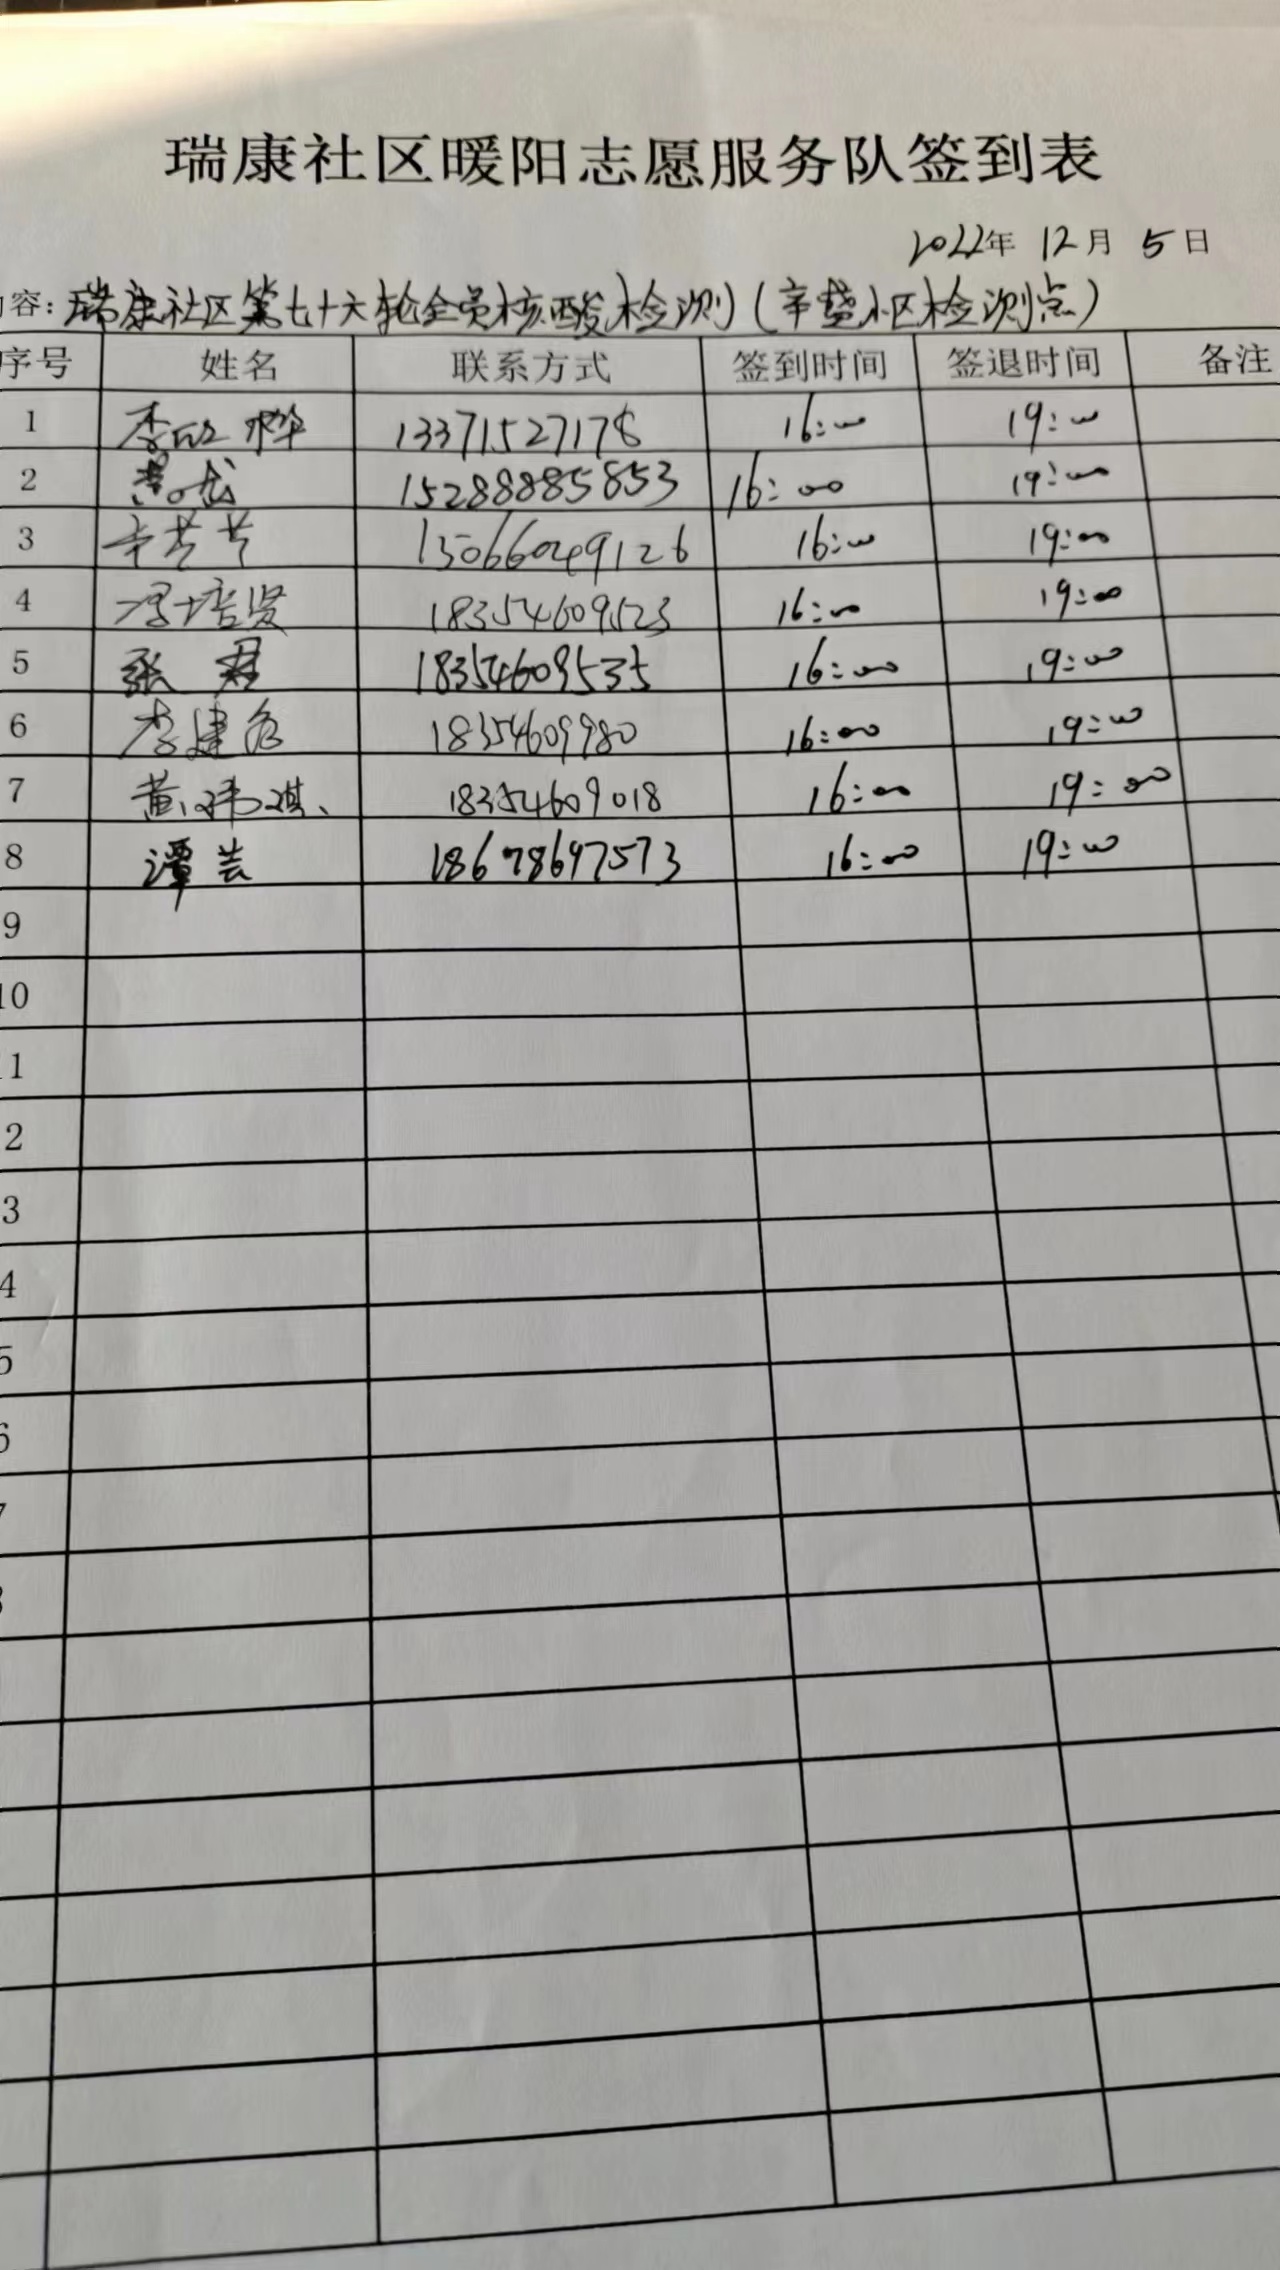 瑞康社区暖阳志愿服务队签到表
2022年 12月 5日
容：瑞康社区第七十六轮全员核酸检测（辛垫小区检测点）
序号 姓名 联系方式 签到时间 签退时间 备注
1 李欣桦 13371527178 16:00 19:00
2 15288885853 16:00 19:00
3 辛芸芸 15066049126 16:00 19:00
4 冯培贤 18354609523 16:00 19:00
5 张君 18354609535 16:00 19:00
6 李建 18354609980 16:00 19:00
7 黄玮琪 18354609018 16:00 19:00
8 谭芸 18678697573 16:00 19:00
9
10
1
2
3
4
5
6
7
8